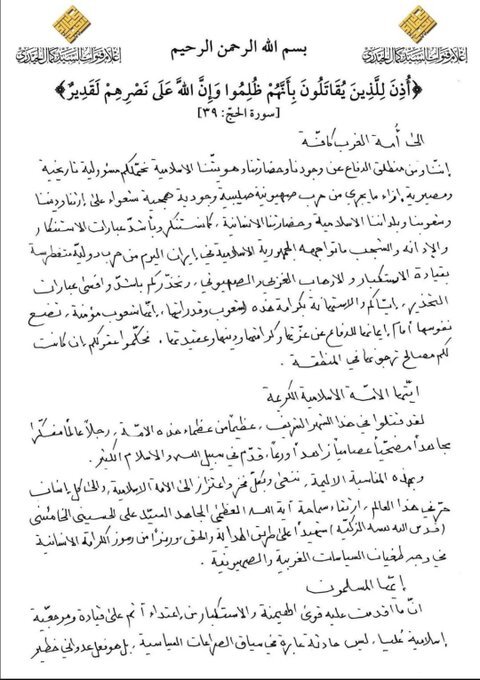 إعلام قنوات السيد كمال الحيدري
إعلام قنوات السيد كمال الحيدري
بسم الله الرحمن الرحيم
﴿أُذِنَ لِلَّذِينَ يُقَاتَلُونَ بِأَنَّهُمْ ظُلِمُوا وَإِنَّ اللَّهَ عَلَى نَصْرِهِمْ لَقَدِيرٌ﴾
[سورة الحجّ: ٣٩]
الى أُمة الغرب كافة
إننا ومن منطلق الدفاع عن وجودنا وحضارتنا وهويتنا الاسلامية نحمّلكم مسؤولية تاريخية
ومصيرية إزاء ما يجري من حرب صهيونية صليبية وجودية همجية شعواء على إرثنا وديننا
وشعوبنا وبلداننا الاسلامية وحضارتنا الانسانية، كما نستنكر وبأشدّ عبارات الاستنكار
والإدانة والشجب ما تواجهه الجمهورية الاسلامية في إيران اليوم من حرب دولية متغطرسة
بقيادة الاستكبار والارهاب الغربي والصهيوني، ونحذّركم بأشدّ واقسى عبارات
التحذير، إيّاكم والاستهانة بكرامة هذه الشعوب وقدراتها، إنّها شعوب مؤمنة، تضع
نفوسها أمام إيمانها للدفاع عن عزّتها وكرامتها ودينها وعقيدتها. فحكّموا عقولكم إن كانت
لكم مصالح ترجونها في المنطقة.
أيتها الامّة الاسلامية الكريمة
لقد قتلوا في هذا الشهر الشريف، عظيماً من عظماء هذه الامّة، رجلاً عالماً مفكّراً
مجاهداً مضحّياً عصامياً زاهداً ورعاً، قدّم في سبيل الله والاسلام الكثير.
وبهذه المناسبة الاليمة، ننعى وبكلّ فخر واعتزاز الى الامة الاسلامية، والى كل إنسان
حرّ في هذا العالم، ارتقاء سماحة آية الله العظمى المجاهد السيّد علي الحسيني الخامنئي
(قدس الله نفسه الزكيّة) شهيداً على طريق الهداية والحق، ورمزاً من رموز الكرامة الانسانية
في وجه طغيان السياسات الغربية والصهيونية.
إيّها المسلمون
انّ ما اقدمت عليه قوى الهيمنة والاستكبار من إعتداء آثم على قيادة ومرجعية
إسلامية عُليا، ليس حادثة عابرة في سياق الصراعات السياسية، بل هو فعل عدواني خطير